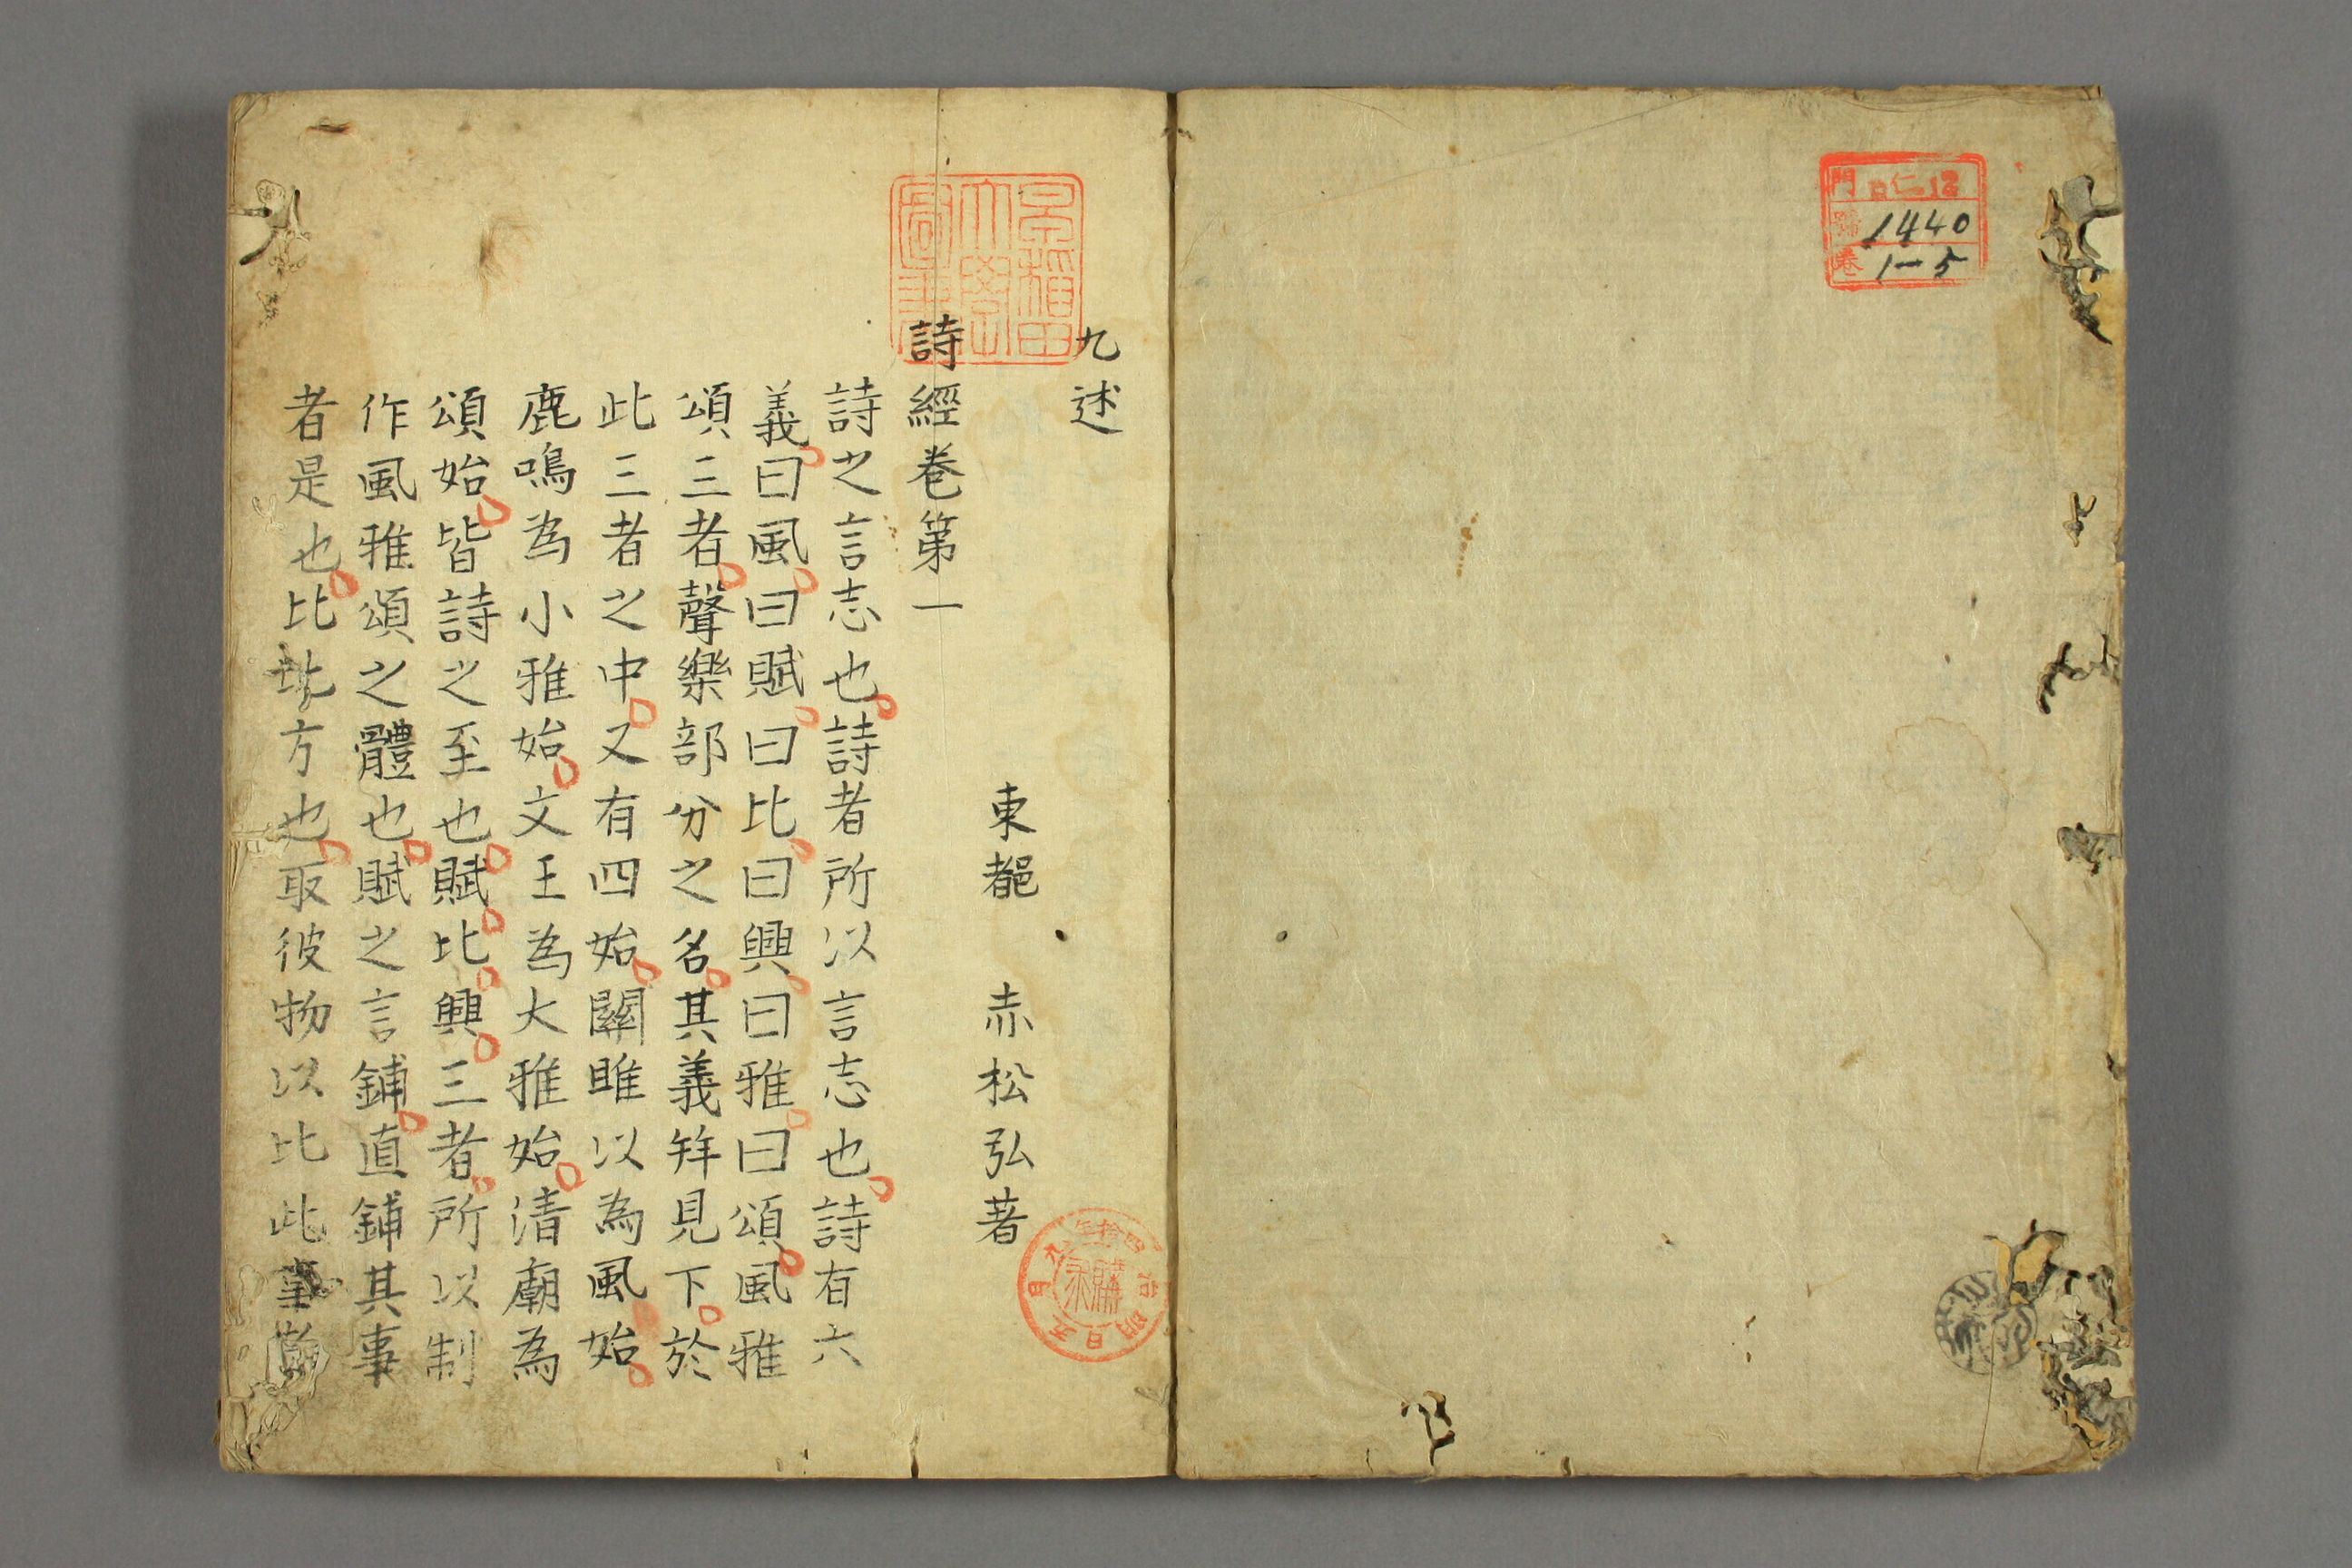 門 仁12
號 1440
卷 1-5
早稲田
大學
圖書
九述
東都 赤松弘著
詩經卷第一
詩之言志也詩者所以言志也詩有六
義曰風曰賦曰比曰興曰雅曰頌風雅
頌三者聲樂部分之名其義詳見下於
此三者之中又有四始關雎以為風始
鹿鳴為小雅始文王為大雅始清廟為
頌始皆詩之至也賦比興三者所以制
作風雅頌之體也賦之言鋪直鋪其事
者是也比比方也取彼物以比此事
明治四拾年九月五日